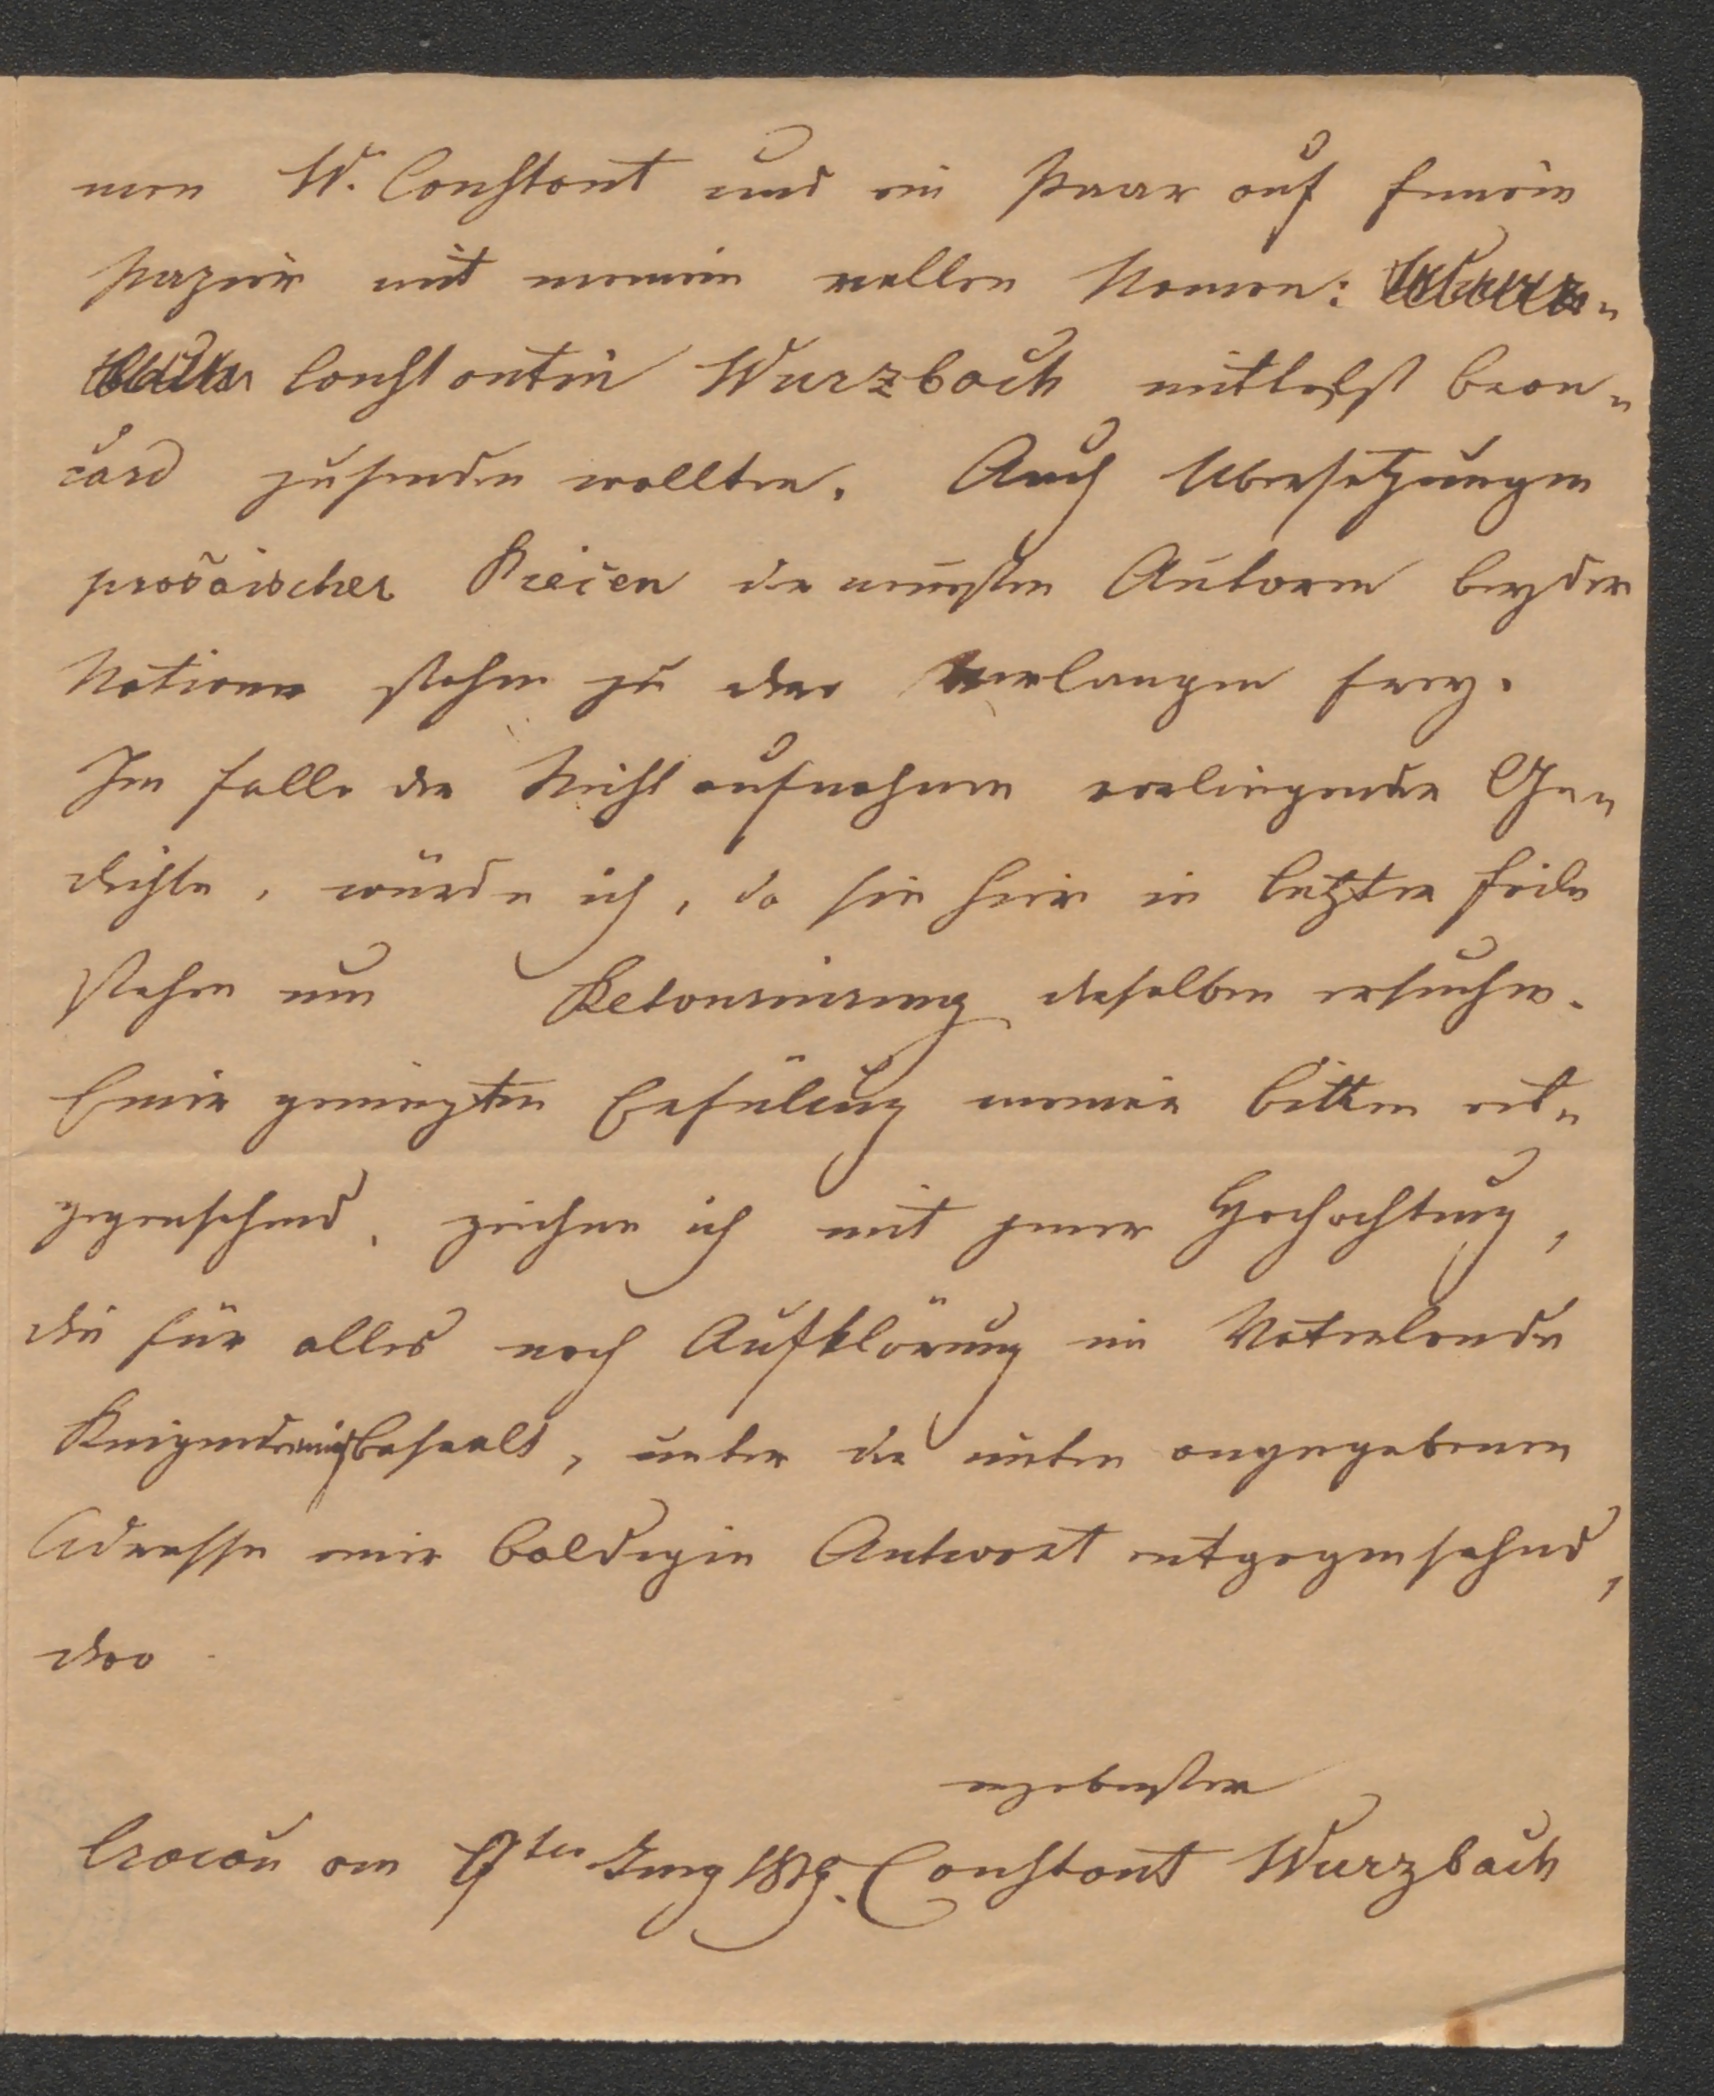 men W. Constant und ein Paar auf feinem
Papier mit meinem vollen Namen:
Constantin Wurzbach mittelst Bran-
card zusenden wollten. Auch Übersetzungen
prosaischer Piecen der neuesten Autoren beyder
Nationen stehen zu dero Verlangen frey.
Im Falle der Nichtaufnahme vorliegender Ge-
dichte, würde ich, da sie hier in letzter Feile
stehen um Retournirung derselben ersuchen.
Einer geneigten Erfüllung meiner Bitten ent-
gegensehend, zeichne ich mit jener Hochachtung,
die für alles nach Aufklärung im Vaterlande
beseelt, unter der unten angegebenen
Adresse einer baldigen Antwort entgegensehend,
dero
ergebenster
Cracau am Constant Wurzbach